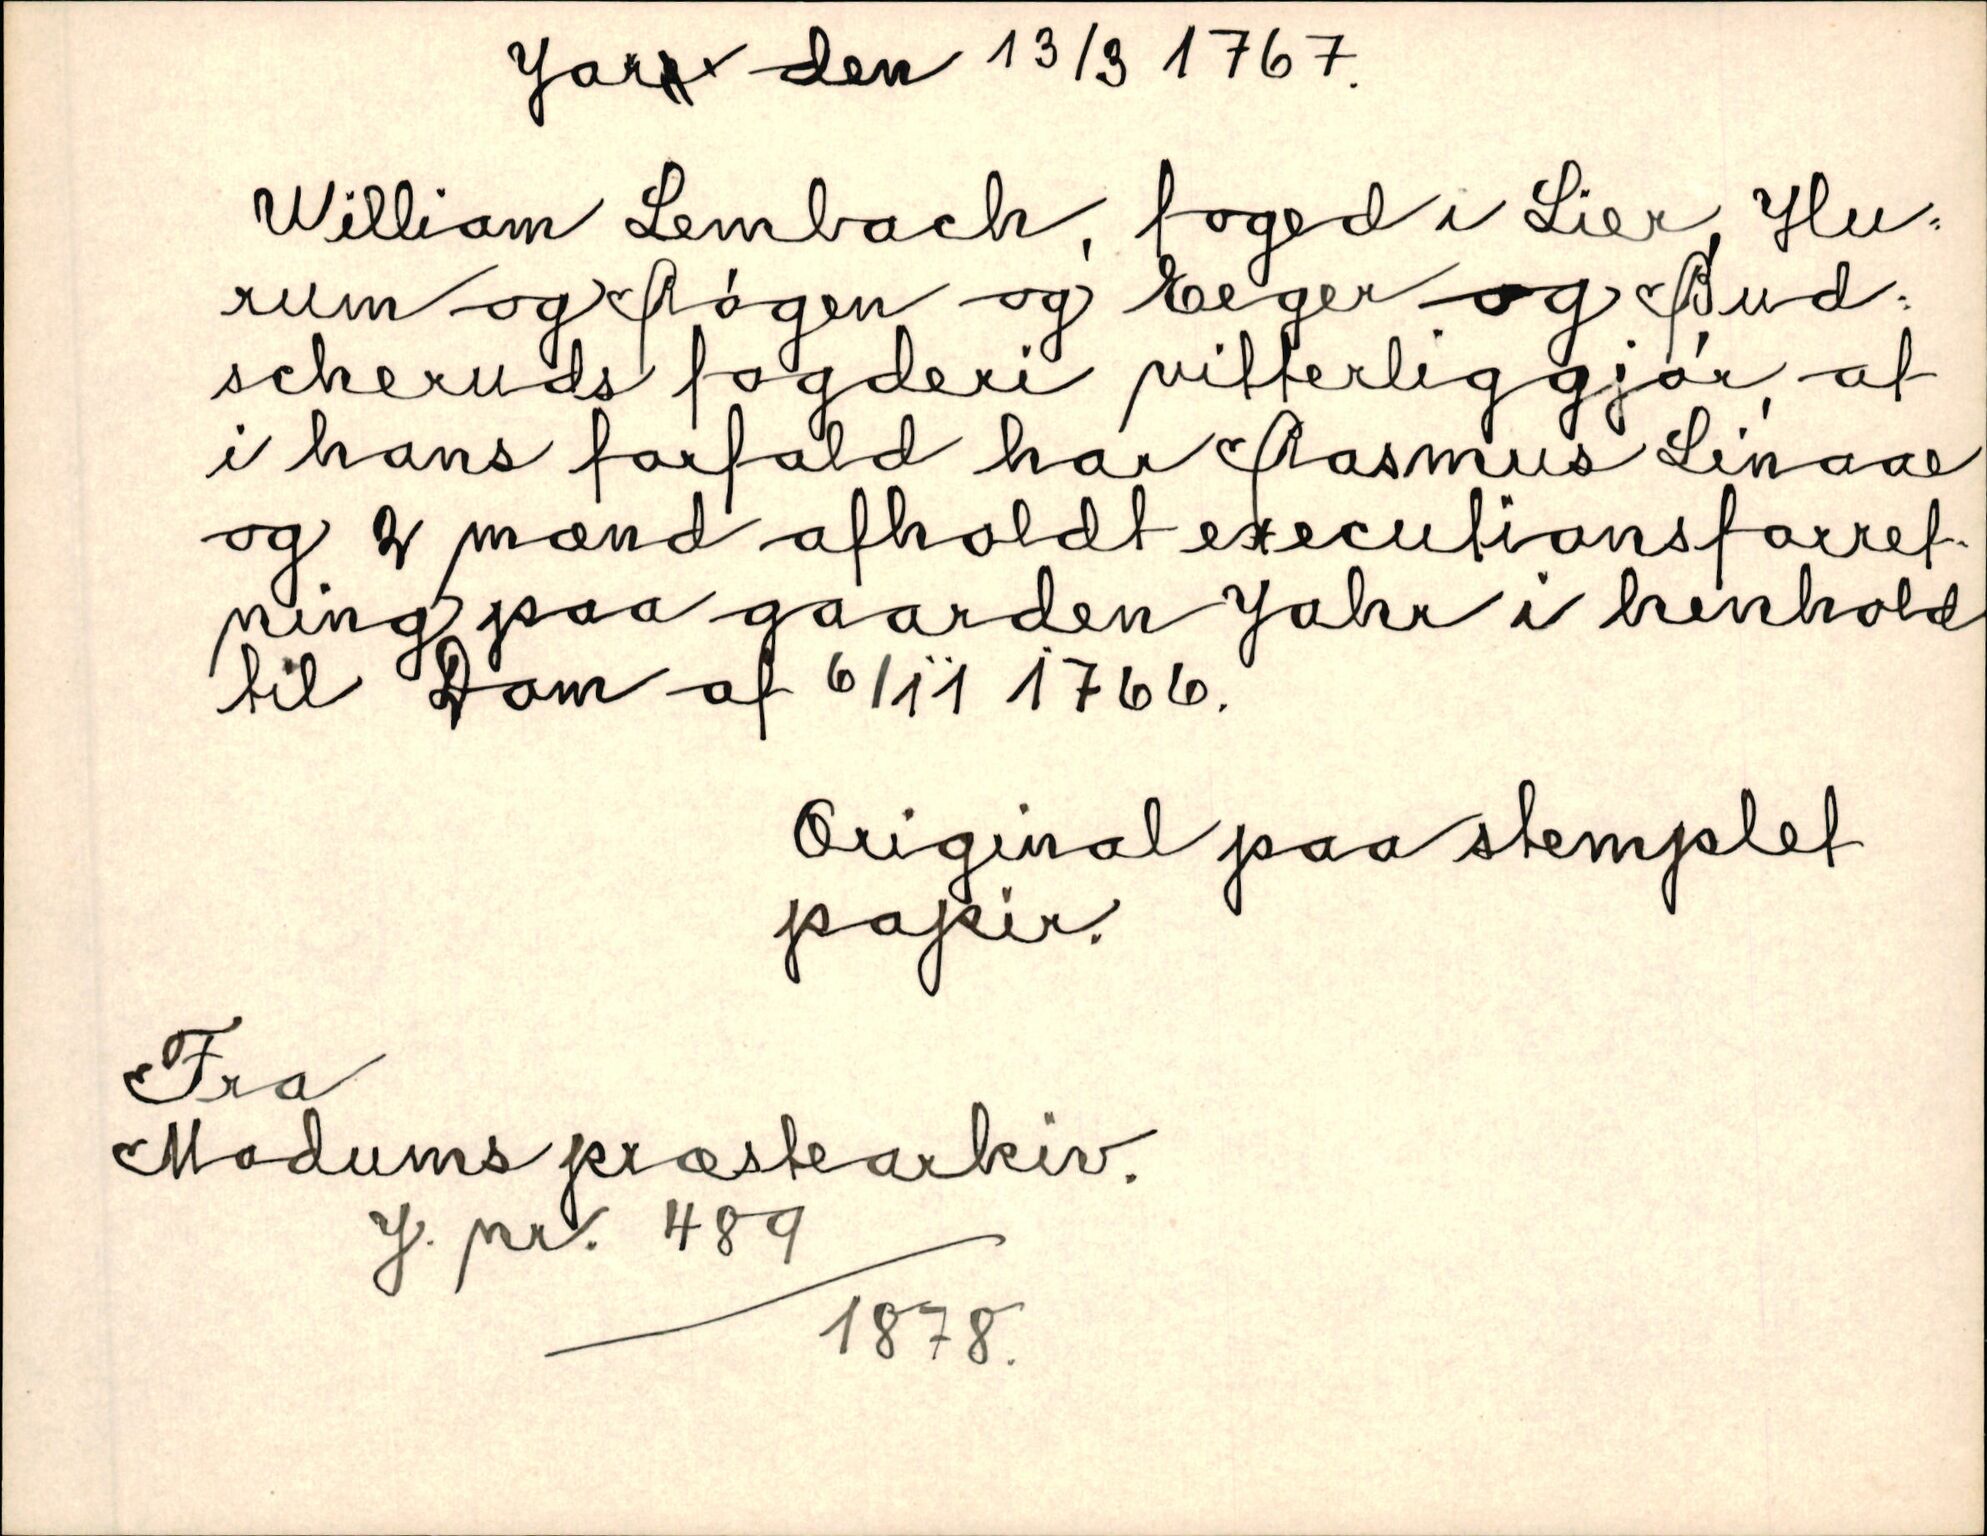 Jarx den 13/3 1767.
William Lembach, foged i Lier, Hu-
rum og Røgen og Eeger og Bud-
scheruds fogderi vitterliggjør, at
i hans forfald har Rasmus Linaae
og 2 mænd afholdt executionsforret-
ning paa gaarden Jahr i henhold
til Dom af 6/11 1766.
Original paa stemplet
papir.
Fra
Modums præstearkiv.
J. nr. 489
1878.